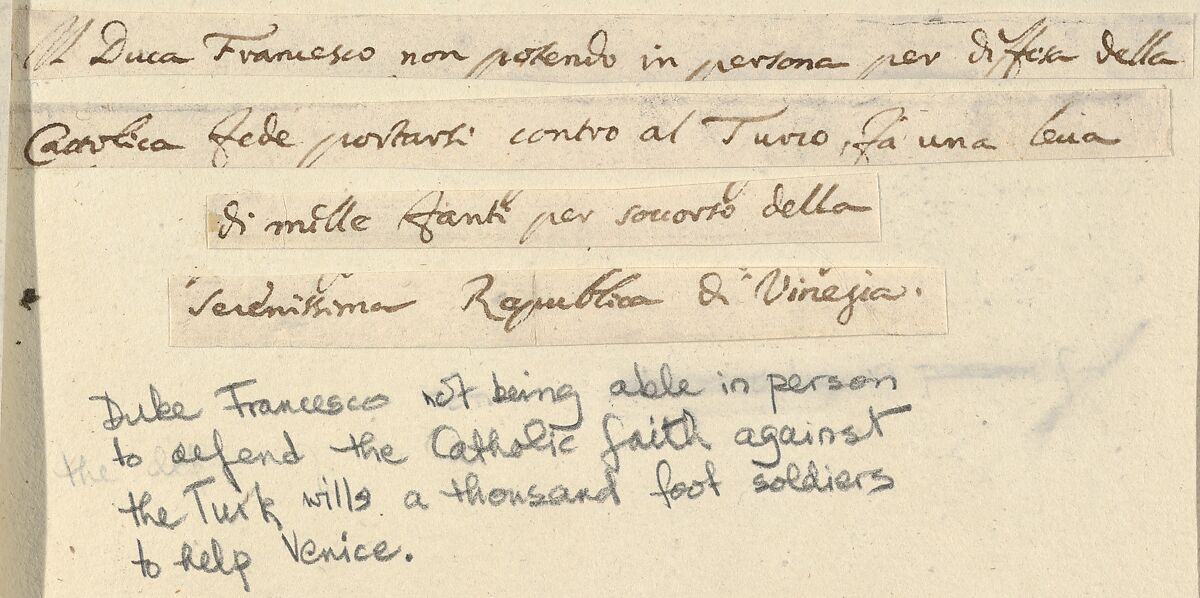 Il Duca Francesco non potendo in persona per difesa della
Cattolica fede portarsi contro al Turco, fà una leua
di mille fanti per soccorso della
Serenissima Republica di Vinezia.
Duke Francesco not being able in person
to defend the Catholic faith against
the Turk wills a thousand foot soldiers
to help Venice.